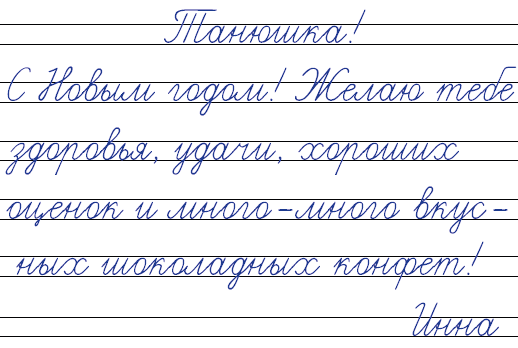 Танюшка!
С Новым годом! Желаю тебе
здоровья, удачи, хороших
оценок и много-много вкус-
ных шоколадных конфет!
Инна